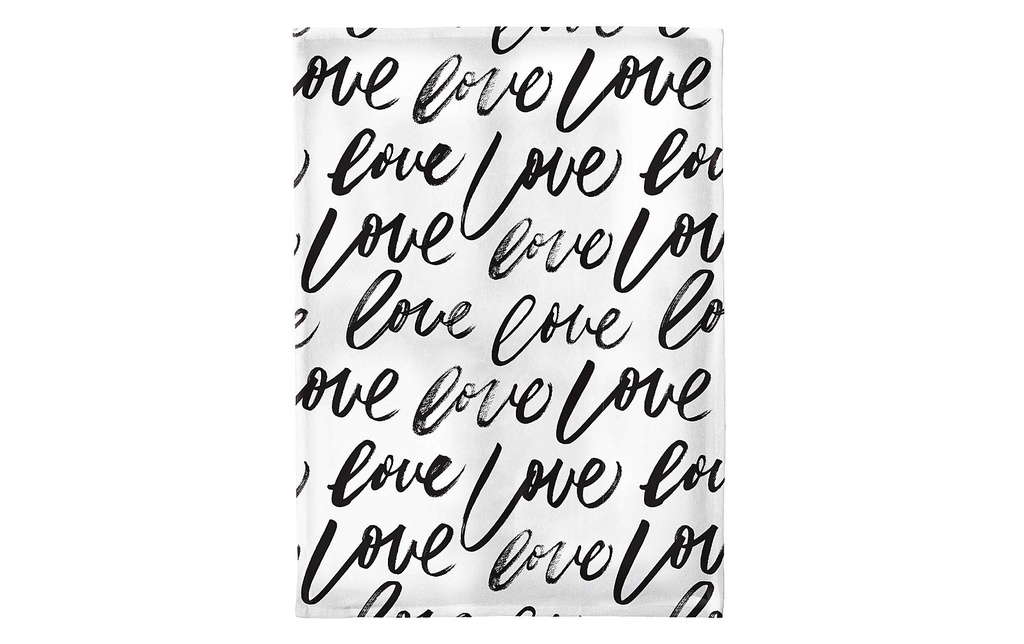 ove love love
love love lov
love love lov
e love love lo
ove love love
love love lov
love love lov